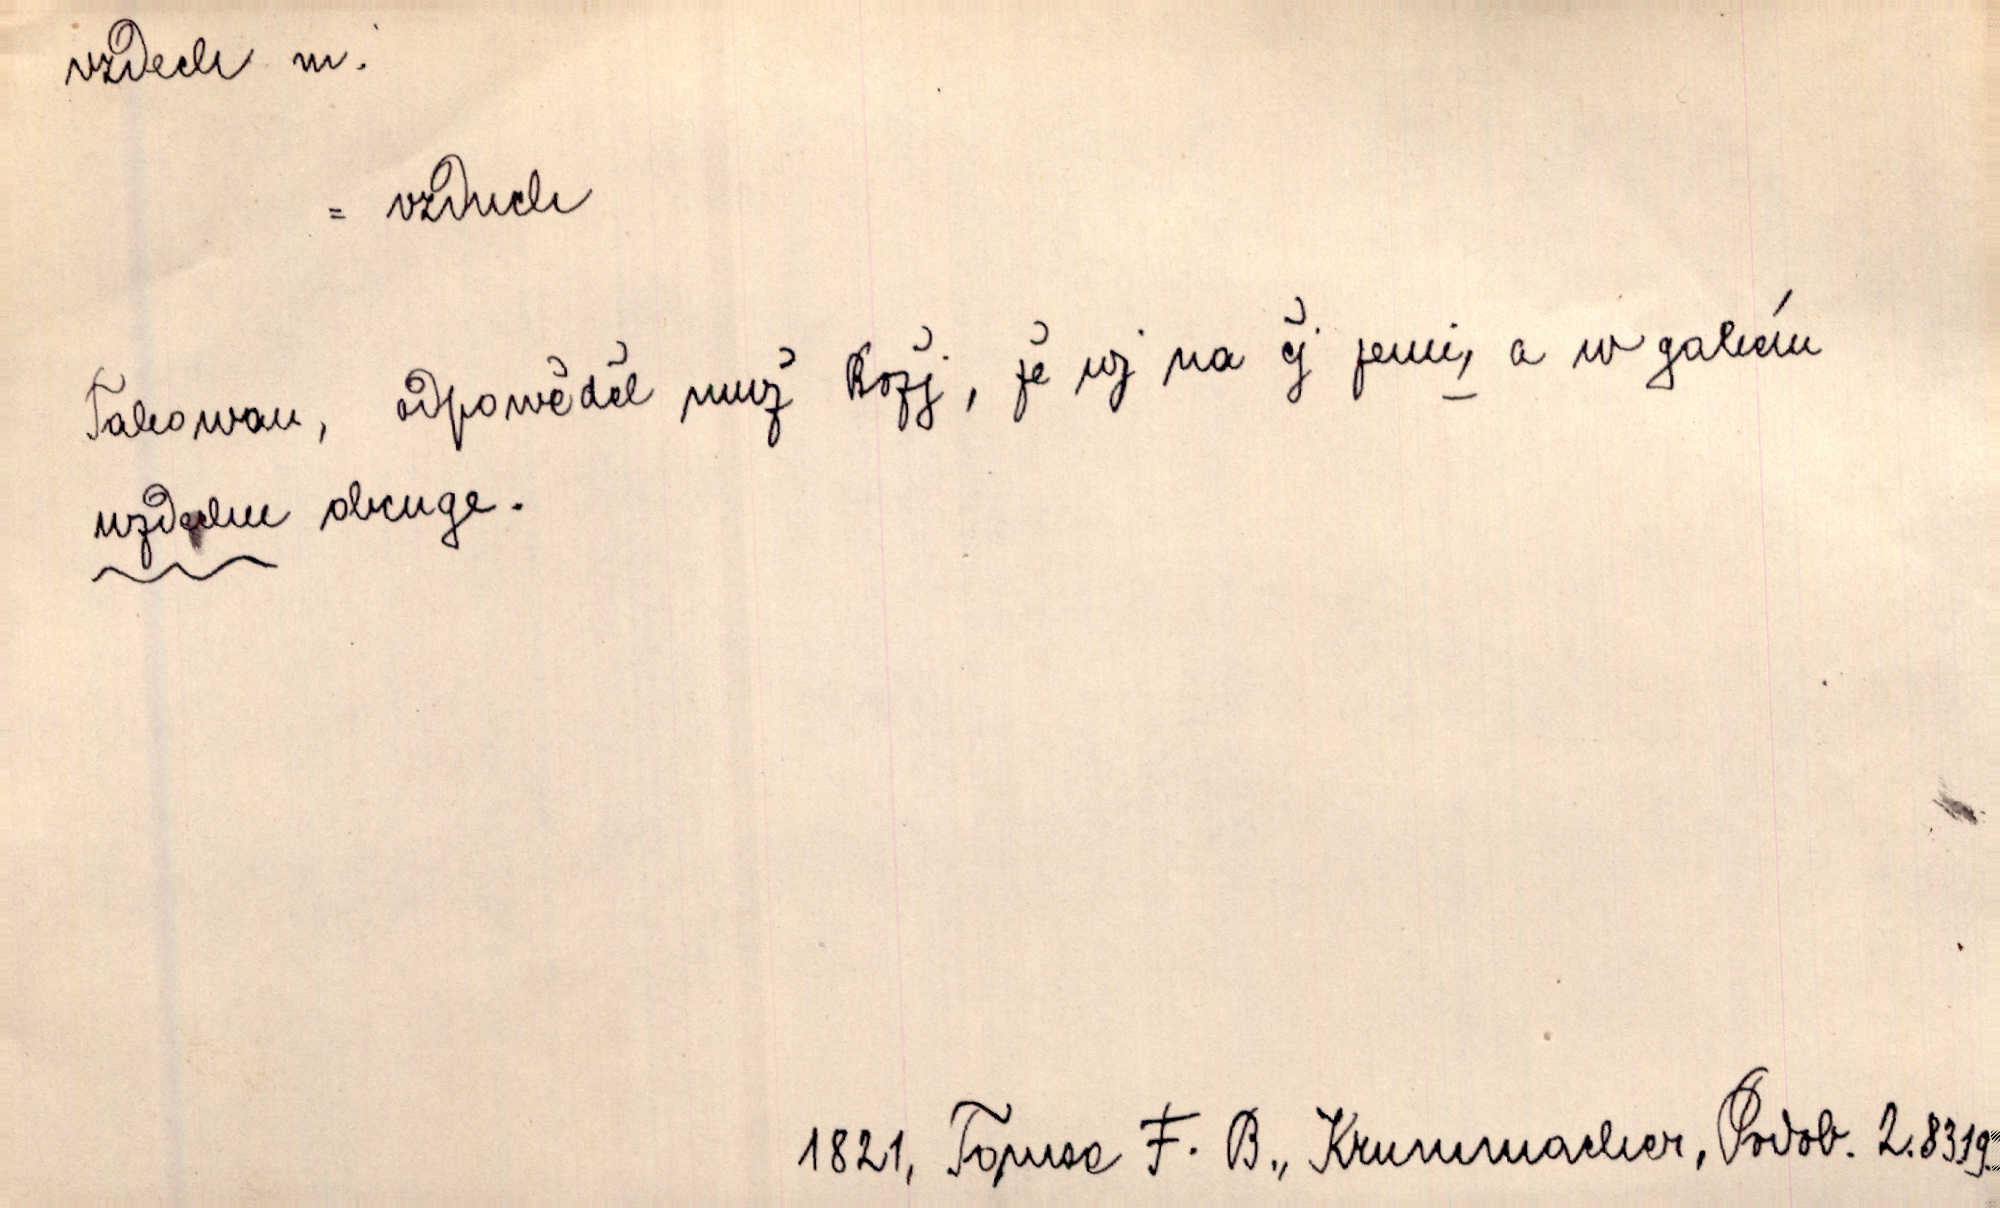 vzdech m.
= vzduch
Takowau, odpowěděl muž Božj, že wj na čj zemi, a w gakém
wzdechu obcuge.
1821, Tomsa F. B., Krummacher, Podob. 2.83 19